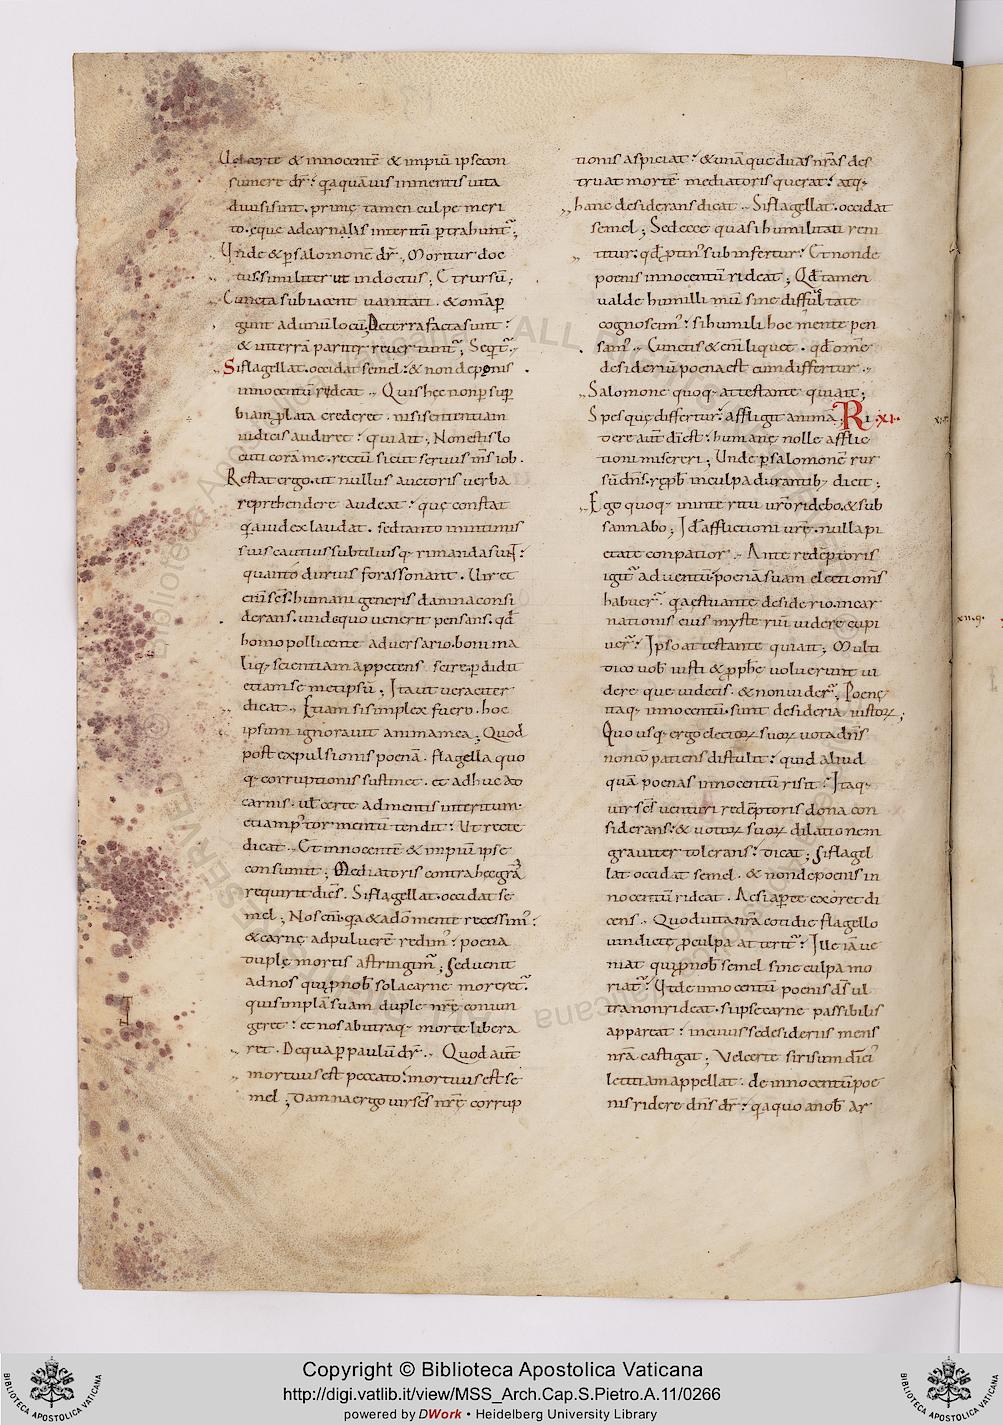 Vel certe & innocentē & impiū ipse con
sumere dr̄; q̨a quāuis in mentis uita
diuisi sunt. prime tamen culpe meri
to. eque ad carnalas interitū ꝑtrahunt̄;
Vnde & ꝑ salomonē dr̄, Moritur doc
tus. similiter ut indoctus; Et rursū;
Cuncta subiacent uanitati. & om̄ia ꝑ
gunt ad unū locū; De terra facta sunt:
& in terrā pariter reuertunt̄; Seqt̄.
Si flagellat. occidat semel: & non de penis
innocentū rideat. Quis hęc non ꝑ sup̄
biam ꝓlata crederet. nisi sententiam
iudicis audiret: qui ait; Non estis lo
cuti corā me. rectū sicut seruus m̄s iob.
Restat ergo. ut nullus auctoris uerba
reprehendere audeat: quę constat
q̨a iudex laudat. sed tanto in intimis
suis cautius subtiliusq; rimanda sunt:
quanto durius foras sonant. Vir et
eni sc̄s. humani generis damna consi
derans. unde quo uenerit pensans. qd̄
homo pollicente aduersario. boni ma
liq; scientiam appetens se ipse ꝑdidit
etiam se met ipsū; Ita ut ueraciter
dicat. Etiam si simplex fuero. hoc
ipsum ignorauit anima mea; Quod
post expulsionis poenā. flagella quo
q; corruptionis sustinet. et adhuc ad
carnis. ul̄ certe ad mentis interitum.
etiam ꝑ tormentū tendit: Ut recte
dicat. Et innocentē & impiū ipse
consumit; Mediatoris contra hęc grā
requirit dices. Si flagellat. occidat se
mel; Nos eni. q̨a & a dō mente recessim̄:
& carne ad puluerē redim̄: poena
duplę mortis astringim̄; Sed uenit
ad nos qui ꝑ nob̄ sola carne moreret̄:
qui simplā suam duple nr̄ę coniun
geret: et nos ab utraq; morte libera
ret. De qua ꝑ paulū dr̄. Quod aut̄
mortuus est peccato: mortuus est se
mel; Damna ergo uir sc̄s nr̄ę corrup
tionis aspiciat: & unā que duas nr̄as des
truat mortē mediatoris querat: atq;
hanc desiderans dicat. Si flagellat. occidat
semel; Sed ecce quasi humilitati reni
titur: qd̄ ꝓtin̄ subinfertur: Et non de
poenis innocentū rideat; Qd̄ tamen
ualde humilli mū sine difficultate
cognoscim̄: si humili hoc mente pen
sam̄. Cunctis & eni liquet. qd̄ om̄e
desideriū poena est cum differtur.
Salomone quoq; attestante qui ait;
Spes quę differtur: affligit anima. RI. XI.
dere aut̄ d̄i est: humanę nolle afflic
tioni misereri; Vnde ꝑ salomonē rur
sū dn̄s. reꝓb̄ in culpa durantib; dicit;
Ego quoq; in interitu uro ridebo. & sub
sannabo; Id ē afflictioni urę. nulla pi
etate conpatior. Ante redēptoris
igit̄ aduentū. poenā suam electi om̄s
habuer̄. q̨a estuante desiderio. incar
nationis eius mysteriū uidere cupi
uer̄: Ipso attestante qui ait; Multi
dico uob̄ iusti & ꝓph̄e uoluerunt ui
dere que uidetis. & non uider̄; Poenę
itaq; innocentū. sunt desideria iustoꝝ;
Quousq; ergo electoꝝ suoꝝ uota dn̄s
non cō patiens distulit: quid aliud
quā poenas innocentū risit: Itaq;
uir sc̄s uenturi redēptoris dona con
siderans: & uotoꝝ suoꝝ dilationem
grauiter tolerans: dicat; Si flagel
lat occidat semel. & non de poenis in
nocentū rideat. Ac si aꝑte exoret di
cens. Quod uita nr̄a cotidie flagello
uindictę ꝓ culpa atterit̄: Ille iā ue
niat qui ꝓ nob̄ semel sine culpa mo
riat̄: Vt de innocentū poenis d̄s ul
tra non rideat. si ipse carne passibilis
appareat: in cuius se desideriis mens
nr̄a castigat; Vel certe si risum d̄i ei
letitiam appellat. de innocentū poe
nis ridere dn̄s dr̄: q̨a quo a nob̄ ar
Copyright © Biblioteca Apostolica Vaticana
http://digi.vatlib.it/view/MSS_Arch.Cap.S.Pietro.A.11/0266
powered by DWork • Heidelberg University Library